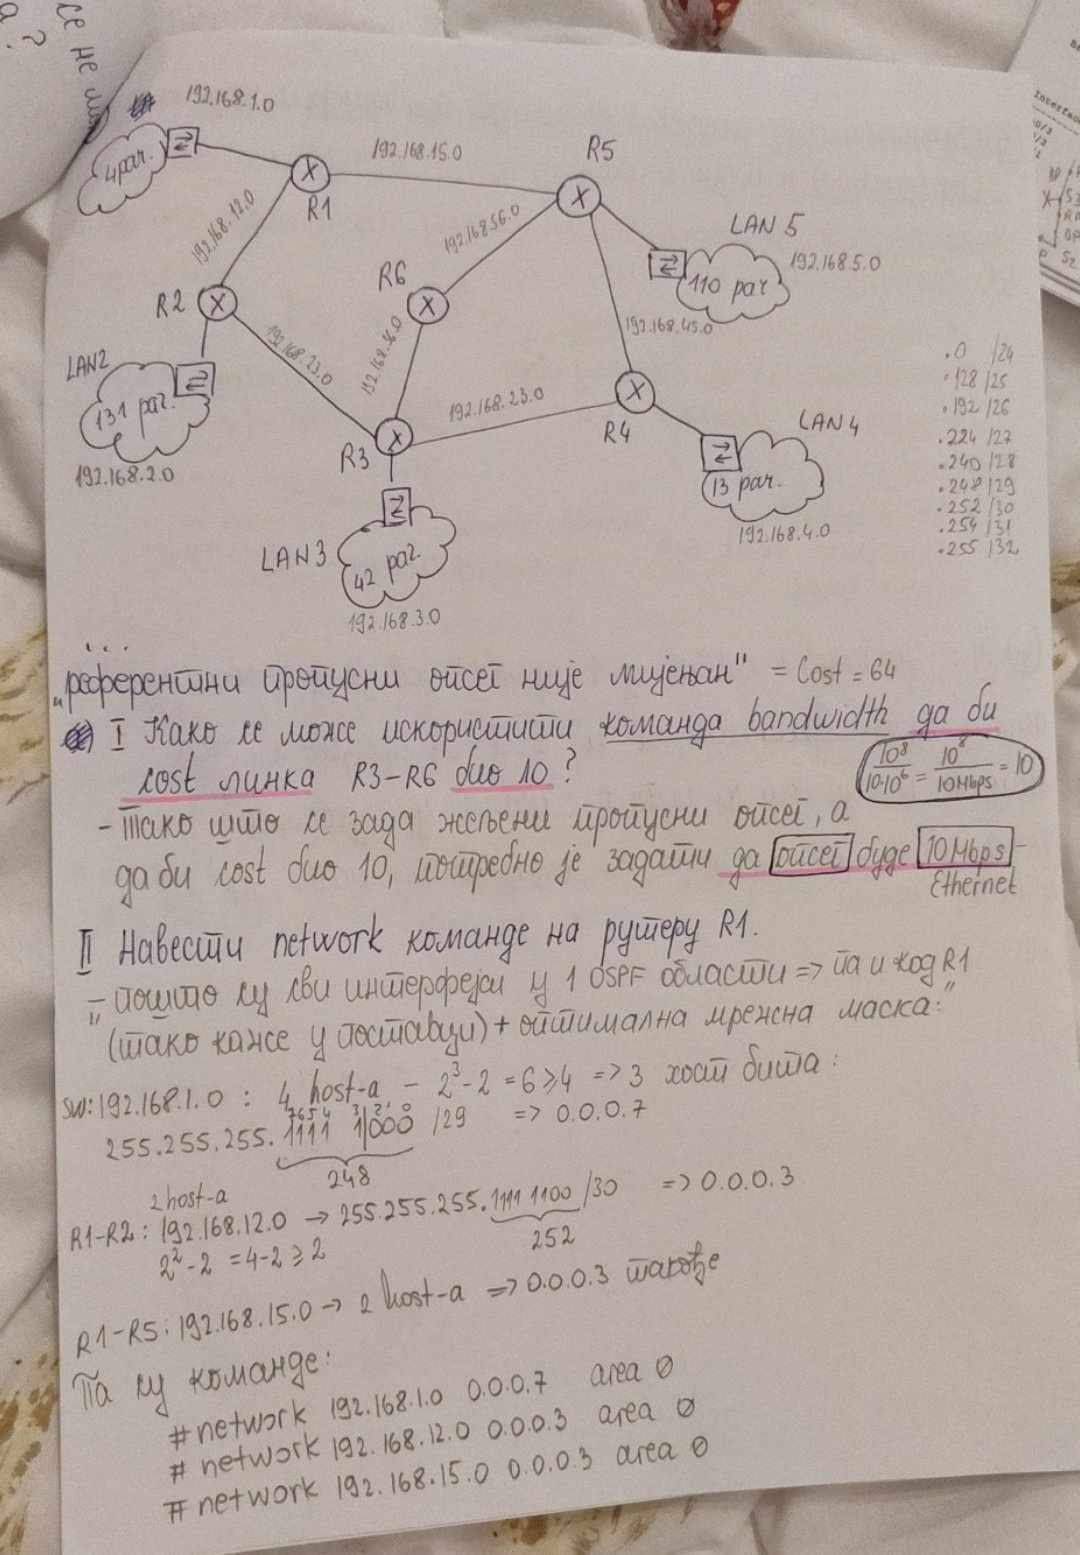 се не
?
192.168.1.0
4 рач.
R1
192.168.15.0
R5
192.168.12.0
192.168.56.0
LAN 5
192.168.5.0
110 рач
R6
R2
192.168.36.0
192.168.45.0
192.168.23.0
LAN2
131 рач.
192.168.2.0
192.168.23.0
R3
R4
LAN4
13 рач.
192.168.4.0
LAN3
42 рач.
192.168.3.0
.0 /24
.128 /25
.192 /26
.224 /27
.240 /28
.248 /29
.252 /30
.254 /31
.255 /32
...
"референтни пропусни опсег није мијењан" = Cost = 64
I Како се може искористити команда bandwidth да би
cost линка R3-R6 био 10?
10⁸/10·10⁶ = 10⁸/10Mbps = 10
- тако што се зада жељени пропусни опсег, а
да би cost био 10, потребно је задати да опсег буде 10 Mbps -
Ethernet
II Навести network команде на рутеру R1.
- "пошто су сви интерфејси у 1 OSPF области => па и код R1
(тако каже у поставци) + оптимална мрежна маска:"
SW: 192.168.1.0 : 4 host-a, - 2³-2 = 6 ≥ 4 => 3 хост бита:
7654 3 2 1 0
255.255.255.1111 1|000 /29 => 0.0.0.7
248
2 host-a
R1-R2: 192.168.12.0 -> 255.255.255.1111 1100 /30 => 0.0.0.3
2²-2 = 4-2 ≥ 2
252
R1-R5: 192.168.15.0 -> 2 host-a => 0.0.0.3 такође
Па су команде:
# network 192.168.1.0 0.0.0.7 area 0
# network 192.168.12.0 0.0.0.3 area 0
# network 192.168.15.0 0.0.0.3 area 0